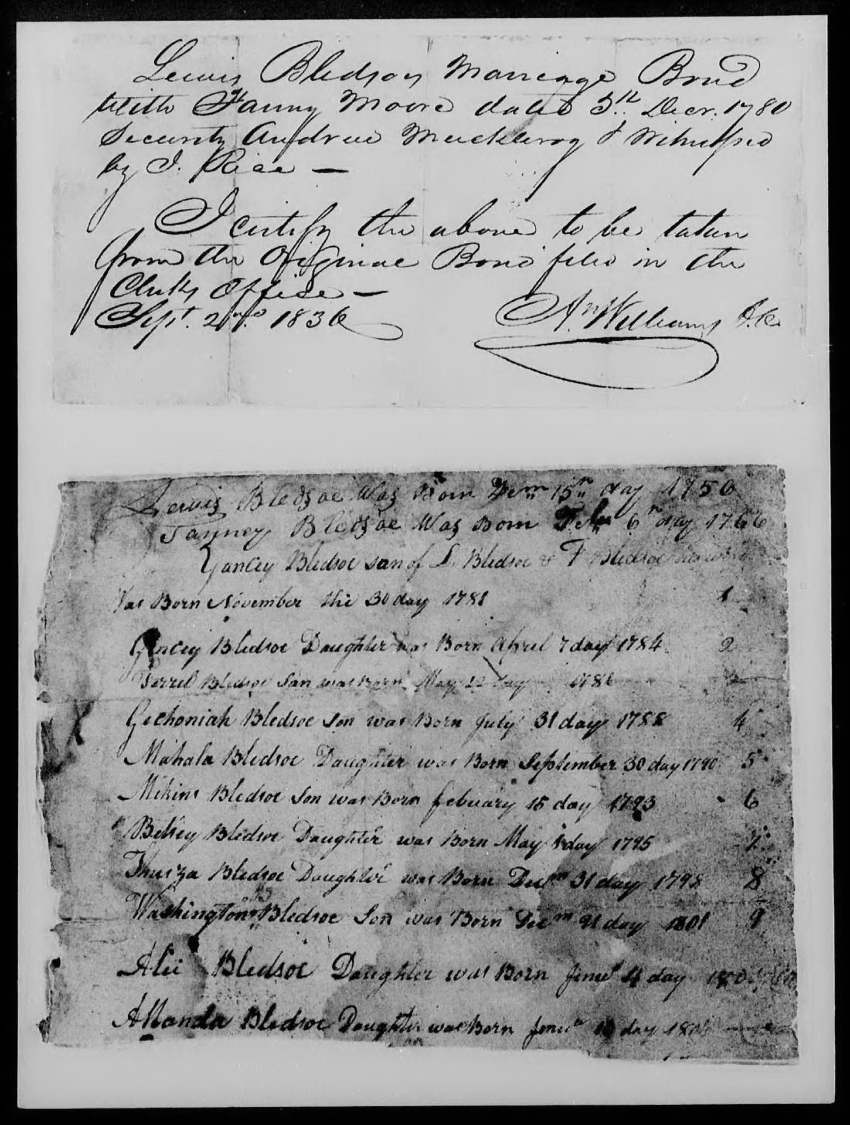 Lewis Bledsoes Marriage Bond
with Fanny Moore dated 5th Decr. 1780
Security Andrew Muckleroy & Witnessed
by J. Rice —
I certify the above to be taken
from the Original Bond filed in the
Clerks Office —
Sept. 2nd 1836
An Williams
Lewis Bledsoe Was Born 15th day 1756
Fanney Bledsoe Was Born Feb 6th day 1766
Yancey Bledsoe son of L. Bledsoe & F Bledsoe
Was Born November the 30 day 1781 1
Bledsoe Daughter was Born April 7 day 1784 2
Terrel Bledsoe Son was Born May 22 day 1786
Gechoniah Bledsoe Son was Born July 31 day 1788 4
Mahala Bledsoe Daughter was Born September 30 day 1790 5
Mikins Bledsoe Son was Born febuary 15 day 1793 6
Betsey Bledsoe Daughter was Born May day 1795 7
Thurza Bledsoe Daughter was Born Decm 31 day 1798 8
Washington Bledsoe Son was Born Decm 21 day 1801 9
Bledsoe Daughter was Born day
Bledsoe Daughter was Born day